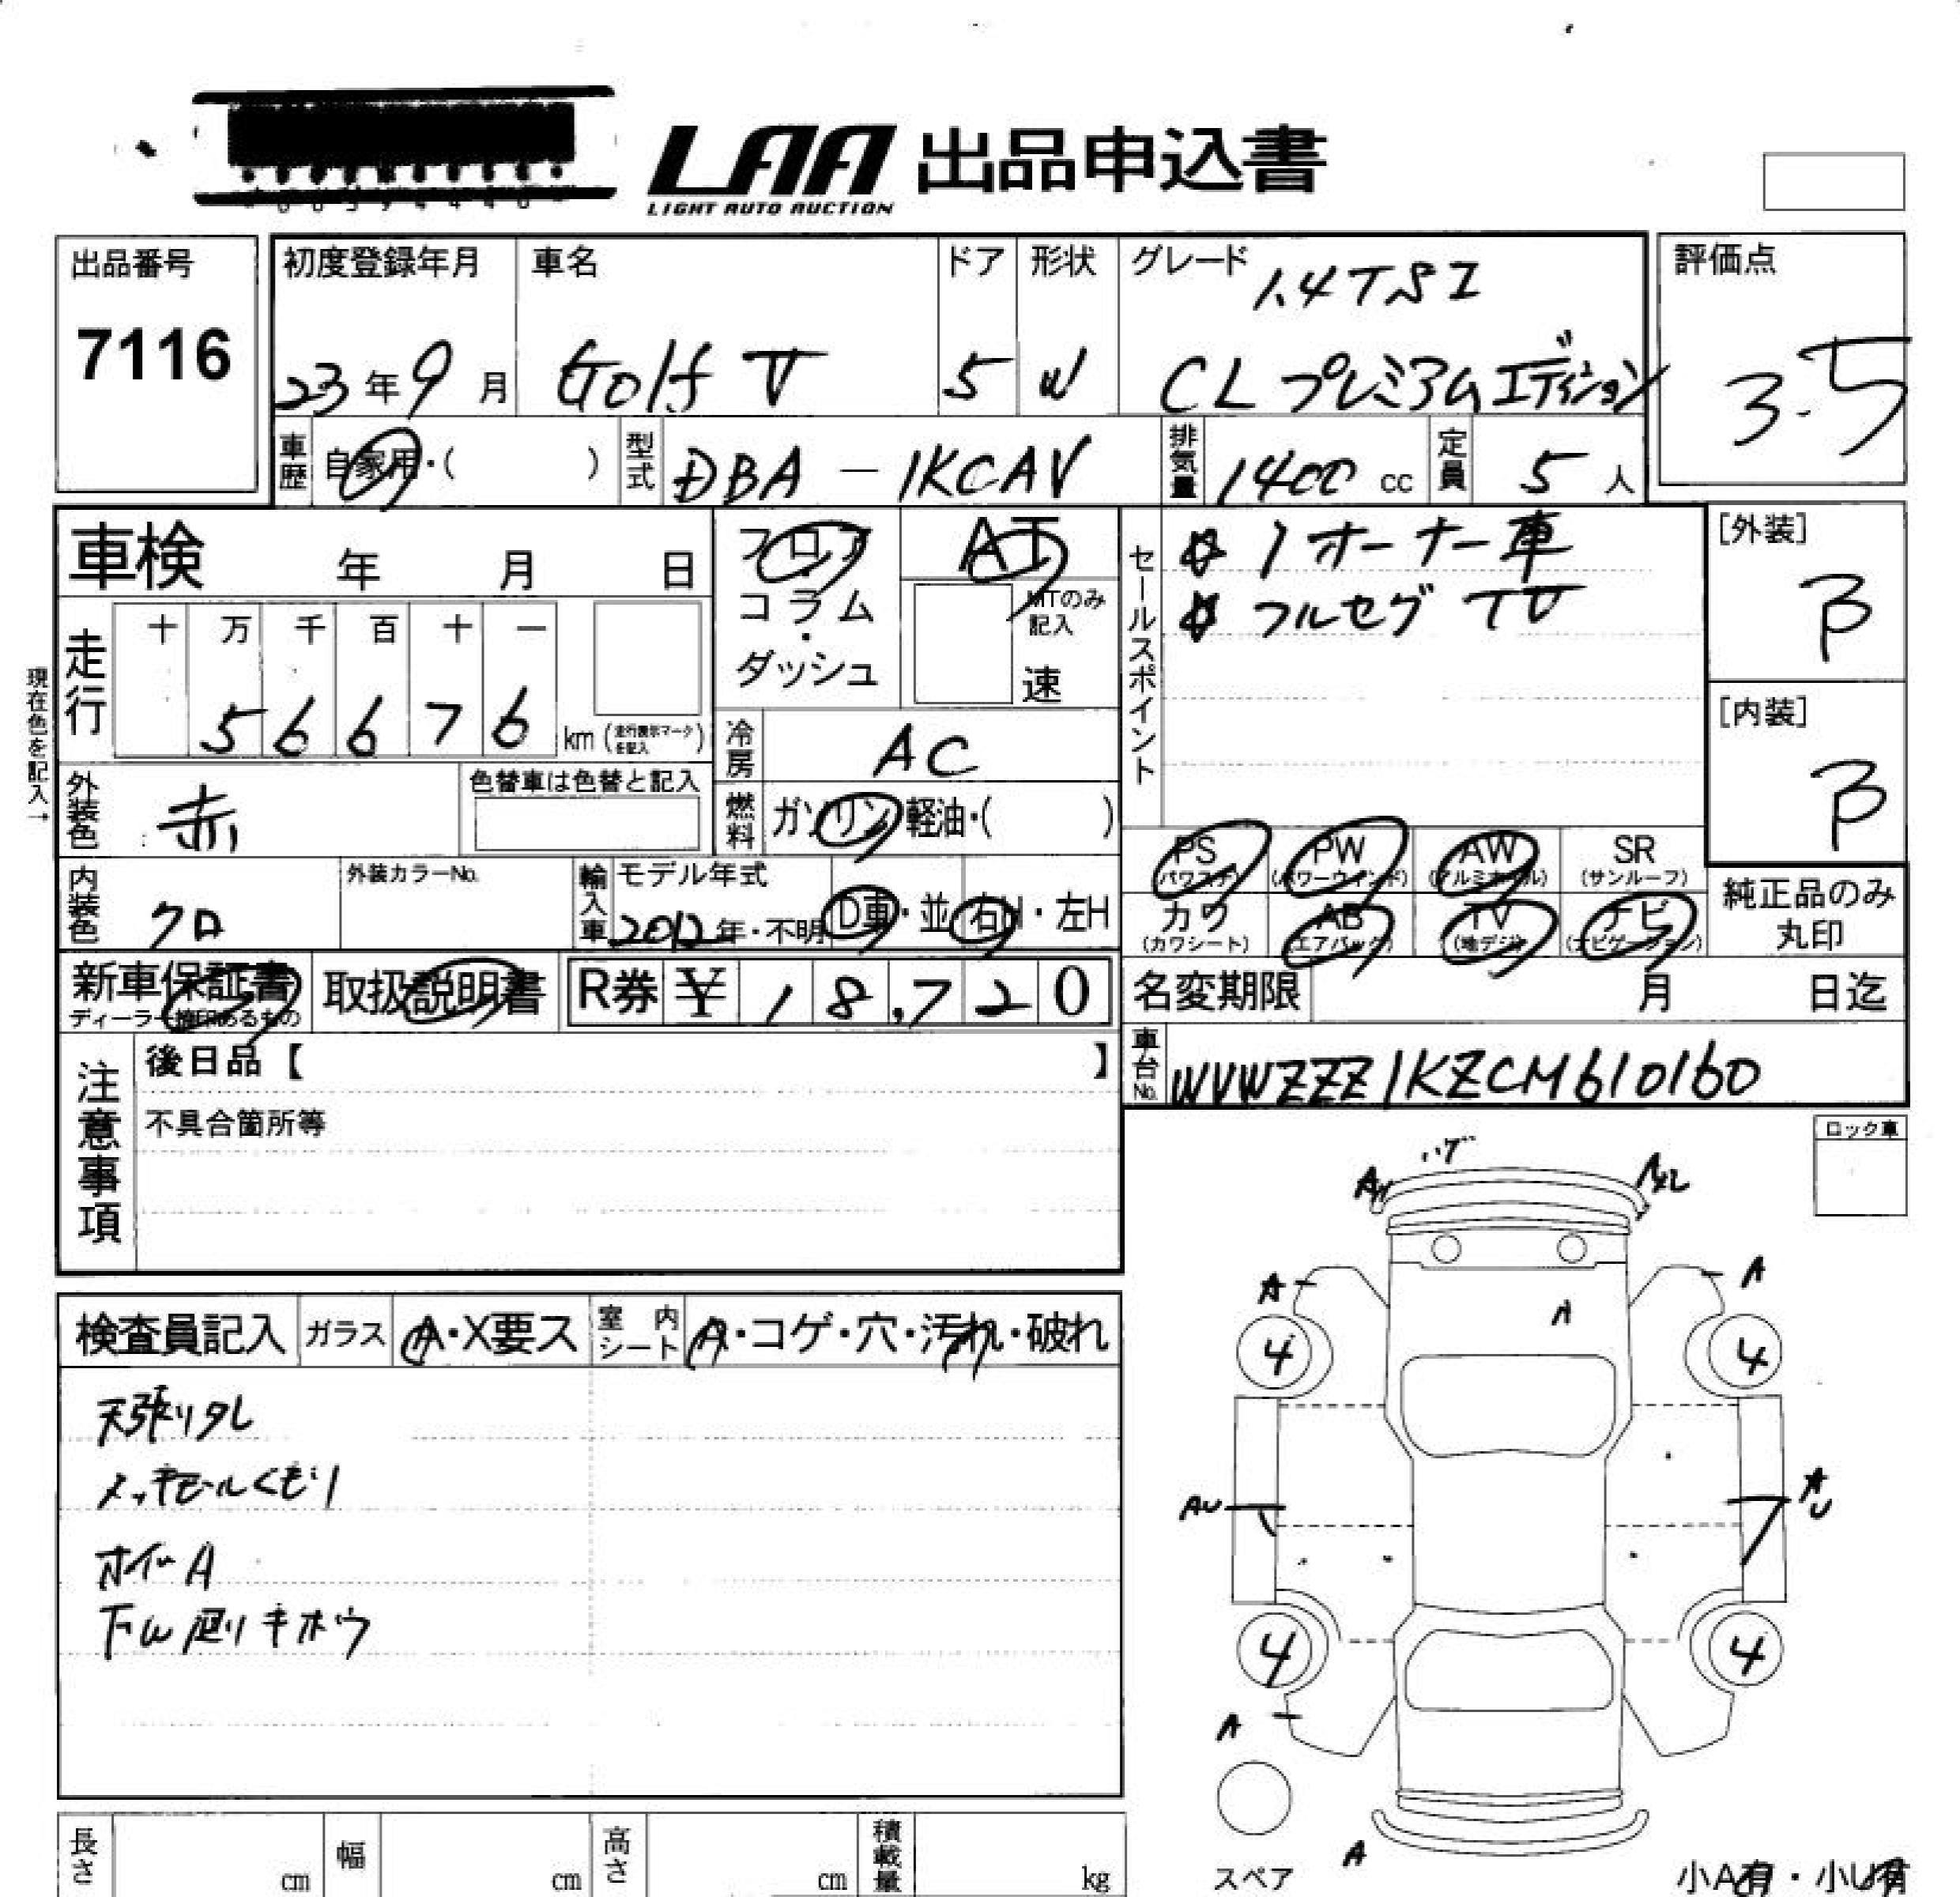 LAA 出品申込書
LIGHT AUTO AUCTION
出品番号
7116
初度登録年月
23年9月
車名
Golf V
ドア
5
形状
W
グレード
1.4TSI
CLプレミアムエディション
評価点
3.5
車歴
自家用・( )
型式
DBA-1KCAV
排気量
1400 cc
定員
5人
車検 年 月 日
フロア
・
コラム
・
ダッシュ
AT
MTのみ
記入
速
セールスポイント
☆1オーナー車
☆フルセグTV
[外装]
B
[内装]
B
現在色を記入→
走行
十 万 千 百 十 一
5 6 6 7 6
km (走行表示マークを記入)
冷房
AC
外装色
赤
色替車は色替と記入
燃料
ガソリン・軽油・( )
PS
(パワステ)
PW
(パワーウインド)
AW
(アルミホイル)
SR
(サンルーフ)
カワ
(カワシート)
AB
(エアバック)
TV
(地デジ)
ナビ
(ナビゲーション)
純正品のみ
丸印
内装色
クロ
外装カラーNo.
輸入車
モデル年式
2012年・不明
D車・並
右H・左H
新車保証書
ディーラー捺印あるもの
取扱説明書
R券 ¥ 18,720
名変期限 月 日迄
車台No.
WVWZZZ1KZCM610160
注意事項
後日品【 】
不具合箇所等
ロック車
検査員記入
ガラス
A・X要ス
室内シート
A・コゲ・穴・汚れ・破れ
天張りタレ
メッキモールくもり
ホイールA
下廻りキホウ
ハゲ
A
A
A
A
4
4
AU
AU
4
4
A
A
スペア
小A有・小U有
長さ cm
幅 cm
高さ cm
積載量 kg